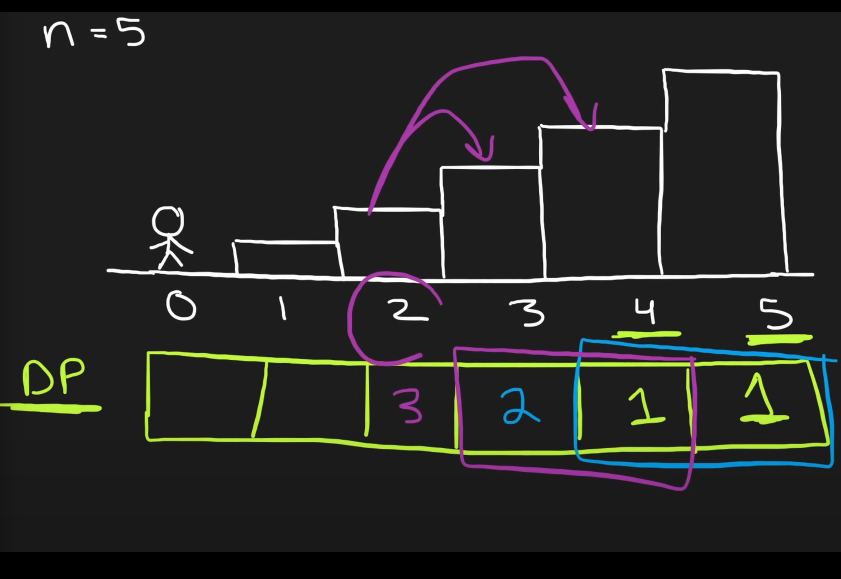 n = 5
0 1 2 3 4 5
DP 3 2 1 1